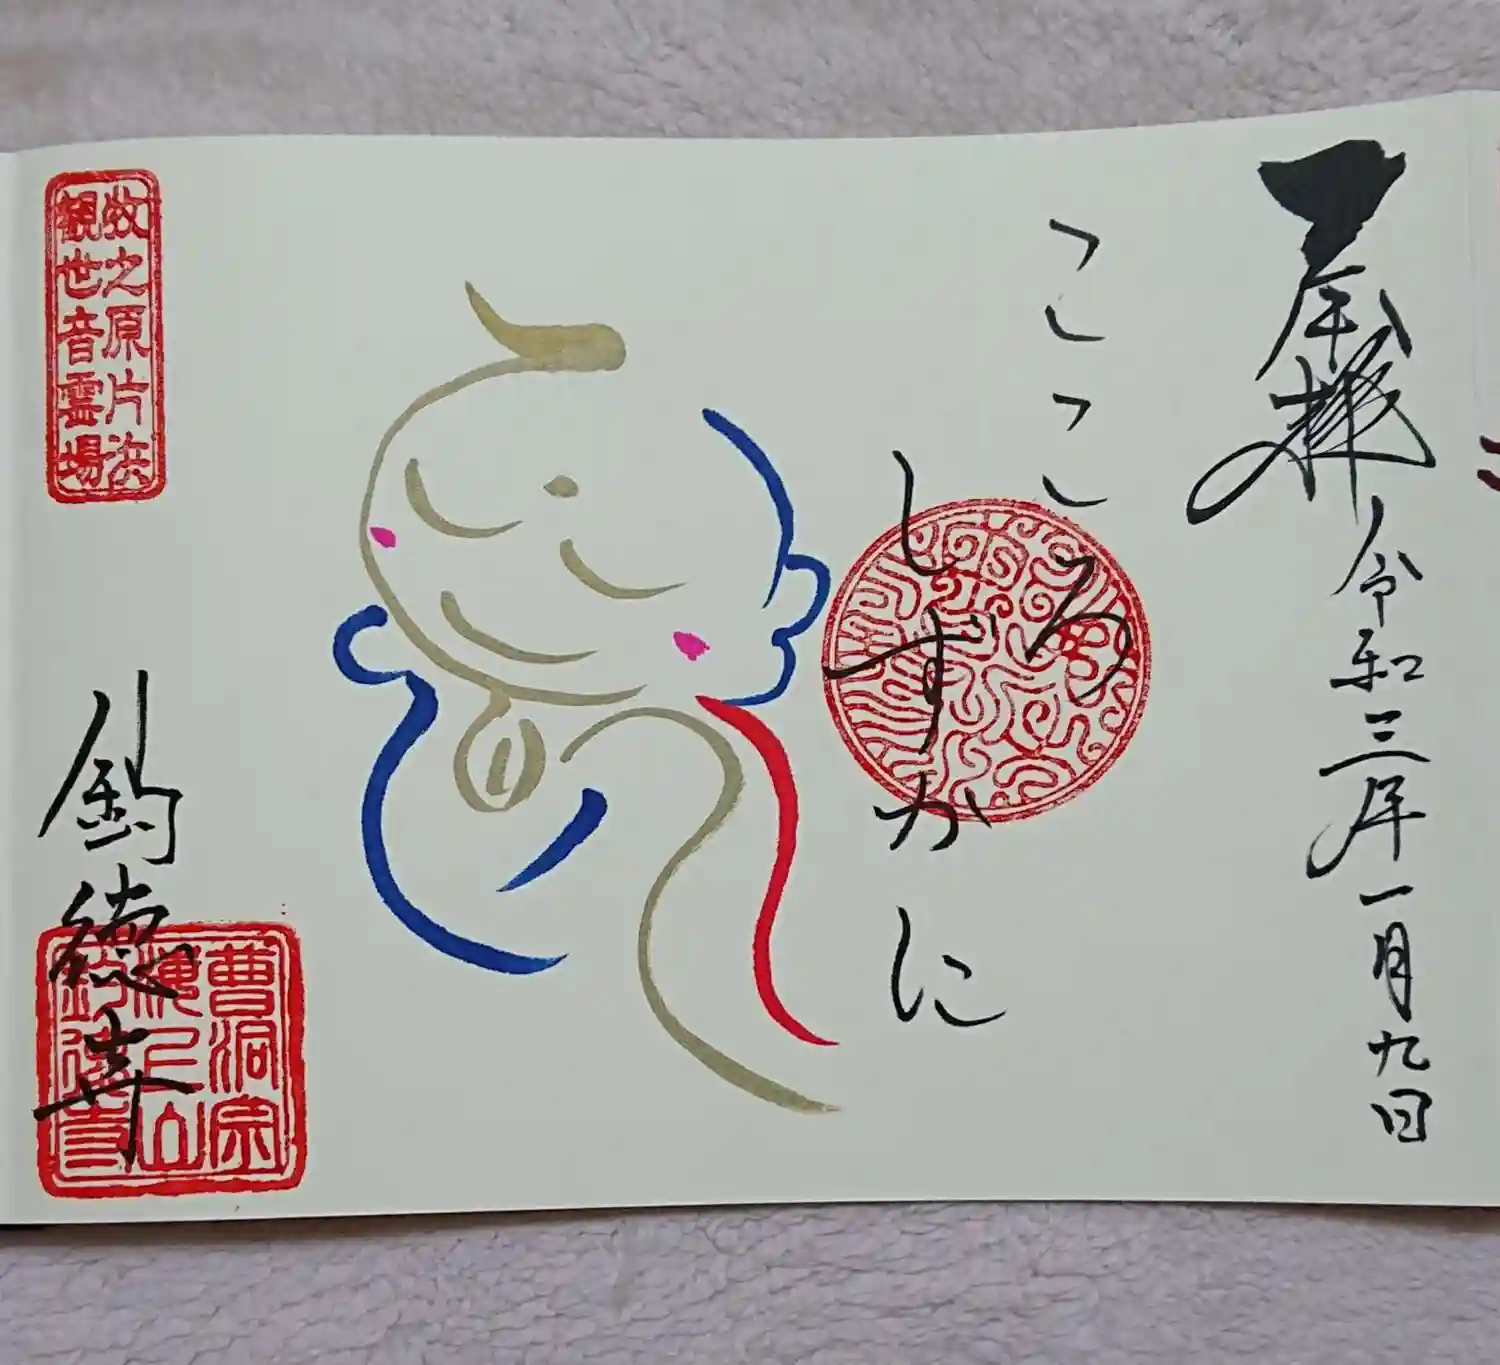 奉拝
令和三年一月九日
こころ
しずかに
牧之原片浜
観世音霊場
釣徳寺
曹洞宗
海上山
釣徳寺